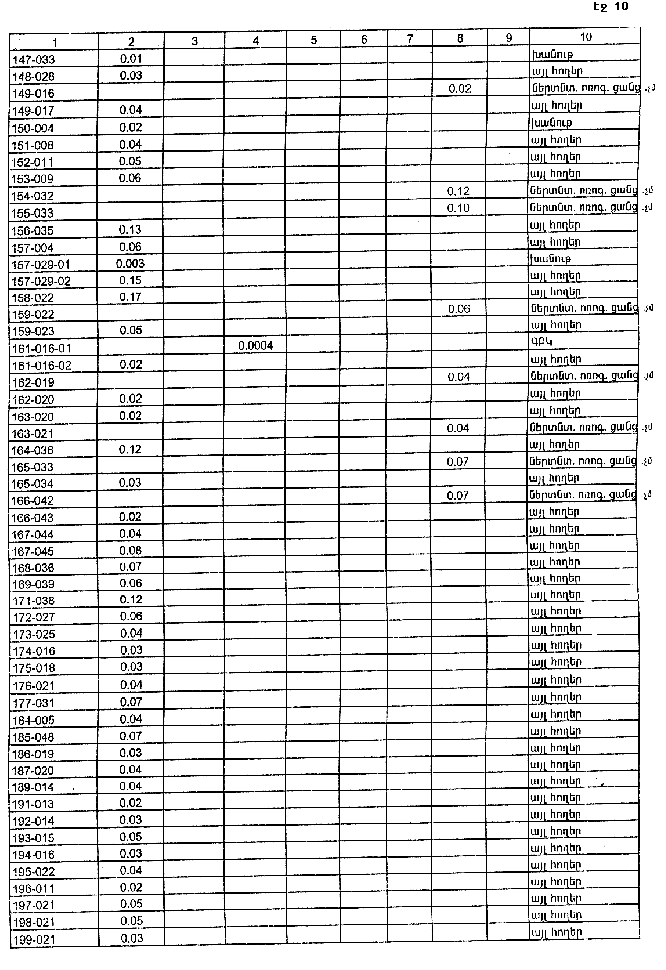 Էջ 10
1 2 3 4 5 6 7 8 9 10
147-033 0.01 խանութ
148-028 0.03 այլ հողեր
149-016 0.02 ներտնտ. ոռոգ. ցանց .չմ
149-017 0.04 այլ հողեր
150-004 0.02 խանութ
151-008 0.04 այլ հողեր
152-011 0.05 այլ հողեր
153-009 0.06 այլ հողեր
154-032 0.12 ներտնտ. ոռոգ. ցանց .չմ
155-033 0.10 ներտնտ. ոռոգ. ցանց .չմ
156-035 0.13 այլ հողեր
157-004 0.06 այլ հողեր
157-029-01 0.003 խանութ
157-029-02 0.15 այլ հողեր
158-022 0.17 այլ հողեր
159-022 0.06 ներտնտ. ոռոգ. ցանց .չմ
159-023 0.05 այլ հողեր
161-016-01 0.0004 ԳԲԿ
161-016-02 0.02 այլ հողեր
162-019 0.04 ներտնտ. ոռոգ. ցանց .չմ
162-020 0.02 այլ հողեր
163-020 0.02 այլ հողեր
163-021 0.04 ներտնտ. ոռոգ. ցանց .չմ
164-036 0.12 այլ հողեր
165-033 0.07 ներտնտ. ոռոգ. ցանց .չմ
165-034 0.03 այլ հողեր
166-042 0.07 ներտնտ. ոռոգ. ցանց .չմ
166-043 0.02 այլ հողեր
167-044 0.04 այլ հողեր
167-045 0.08 այլ հողեր
168-036 0.07 այլ հողեր
169-039 0.06 այլ հողեր
171-038 0.12 այլ հողեր
172-027 0.06 այլ հողեր
173-025 0.04 այլ հողեր
174-016 0.03 այլ հողեր
175-018 0.03 այլ հողեր
176-021 0.04 այլ հողեր
177-031 0.07 այլ հողեր
184-005 0.04 այլ հողեր
185-048 0.07 այլ հողեր
186-019 0.03 այլ հողեր
187-020 0.04 այլ հողեր
189-014 0.04 այլ հողեր
191-013 0.02 այլ հողեր
192-014 0.03 այլ հողեր
193-015 0.05 այլ հողեր
194-016 0.03 այլ հողեր
195-022 0.04 այլ հողեր
196-011 0.02 այլ հողեր
197-021 0.05 այլ հողեր
198-021 0.05 այլ հողեր
199-021 0.03 այլ հողեր